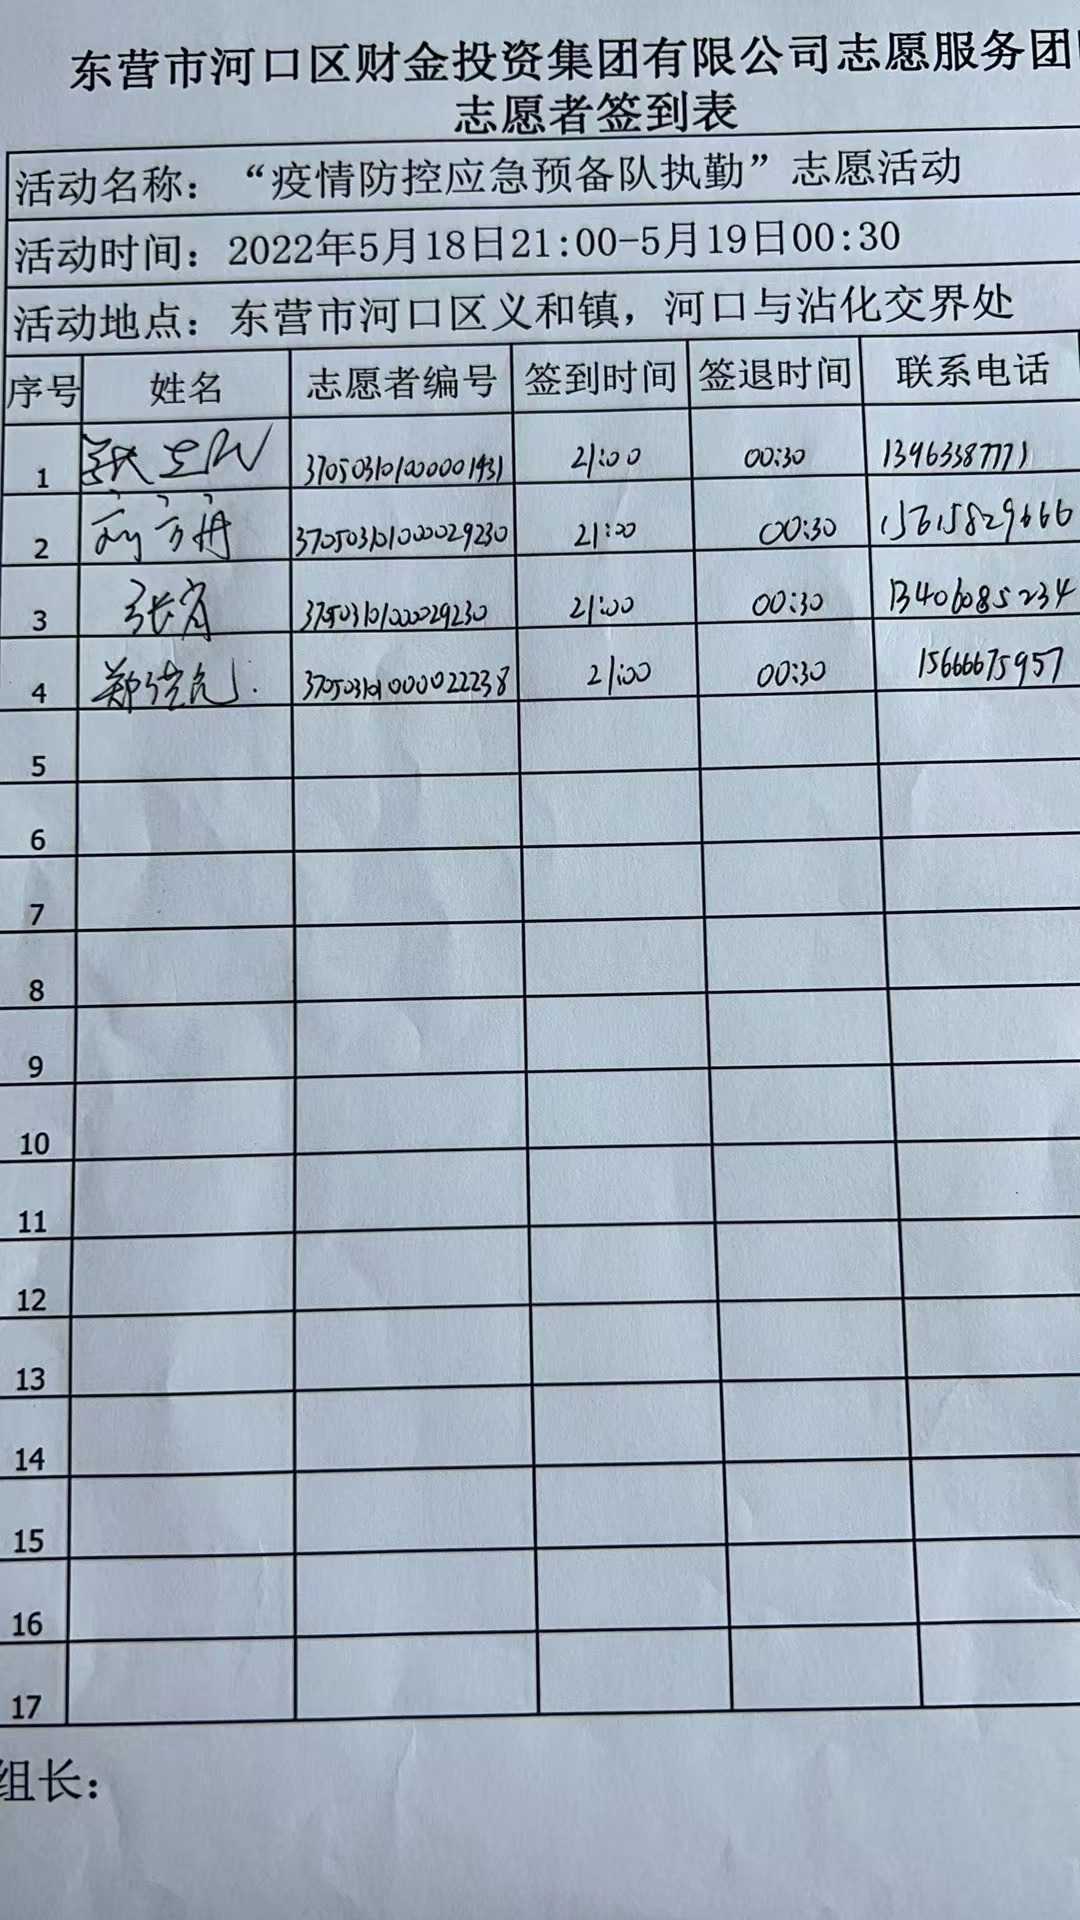 东营市河口区财金投资集团有限公司志愿服务团
志愿者签到表
活动名称：“疫情防控应急预备队执勤”志愿活动
活动时间：2022年5月18日21:00-5月19日00:30
活动地点：东营市河口区义和镇，河口与沾化交界处
序号 姓名 志愿者编号 签到时间 签退时间 联系电话
1 21:00 00:30
2 370503101000029230 21:00 00:30 15615829666
3 21:00 00:30 13406085234
4 370503101000022238 21:00 00:30 15666675957
5
6
7
8
9
10
11
12
13
14
15
16
17
组长：